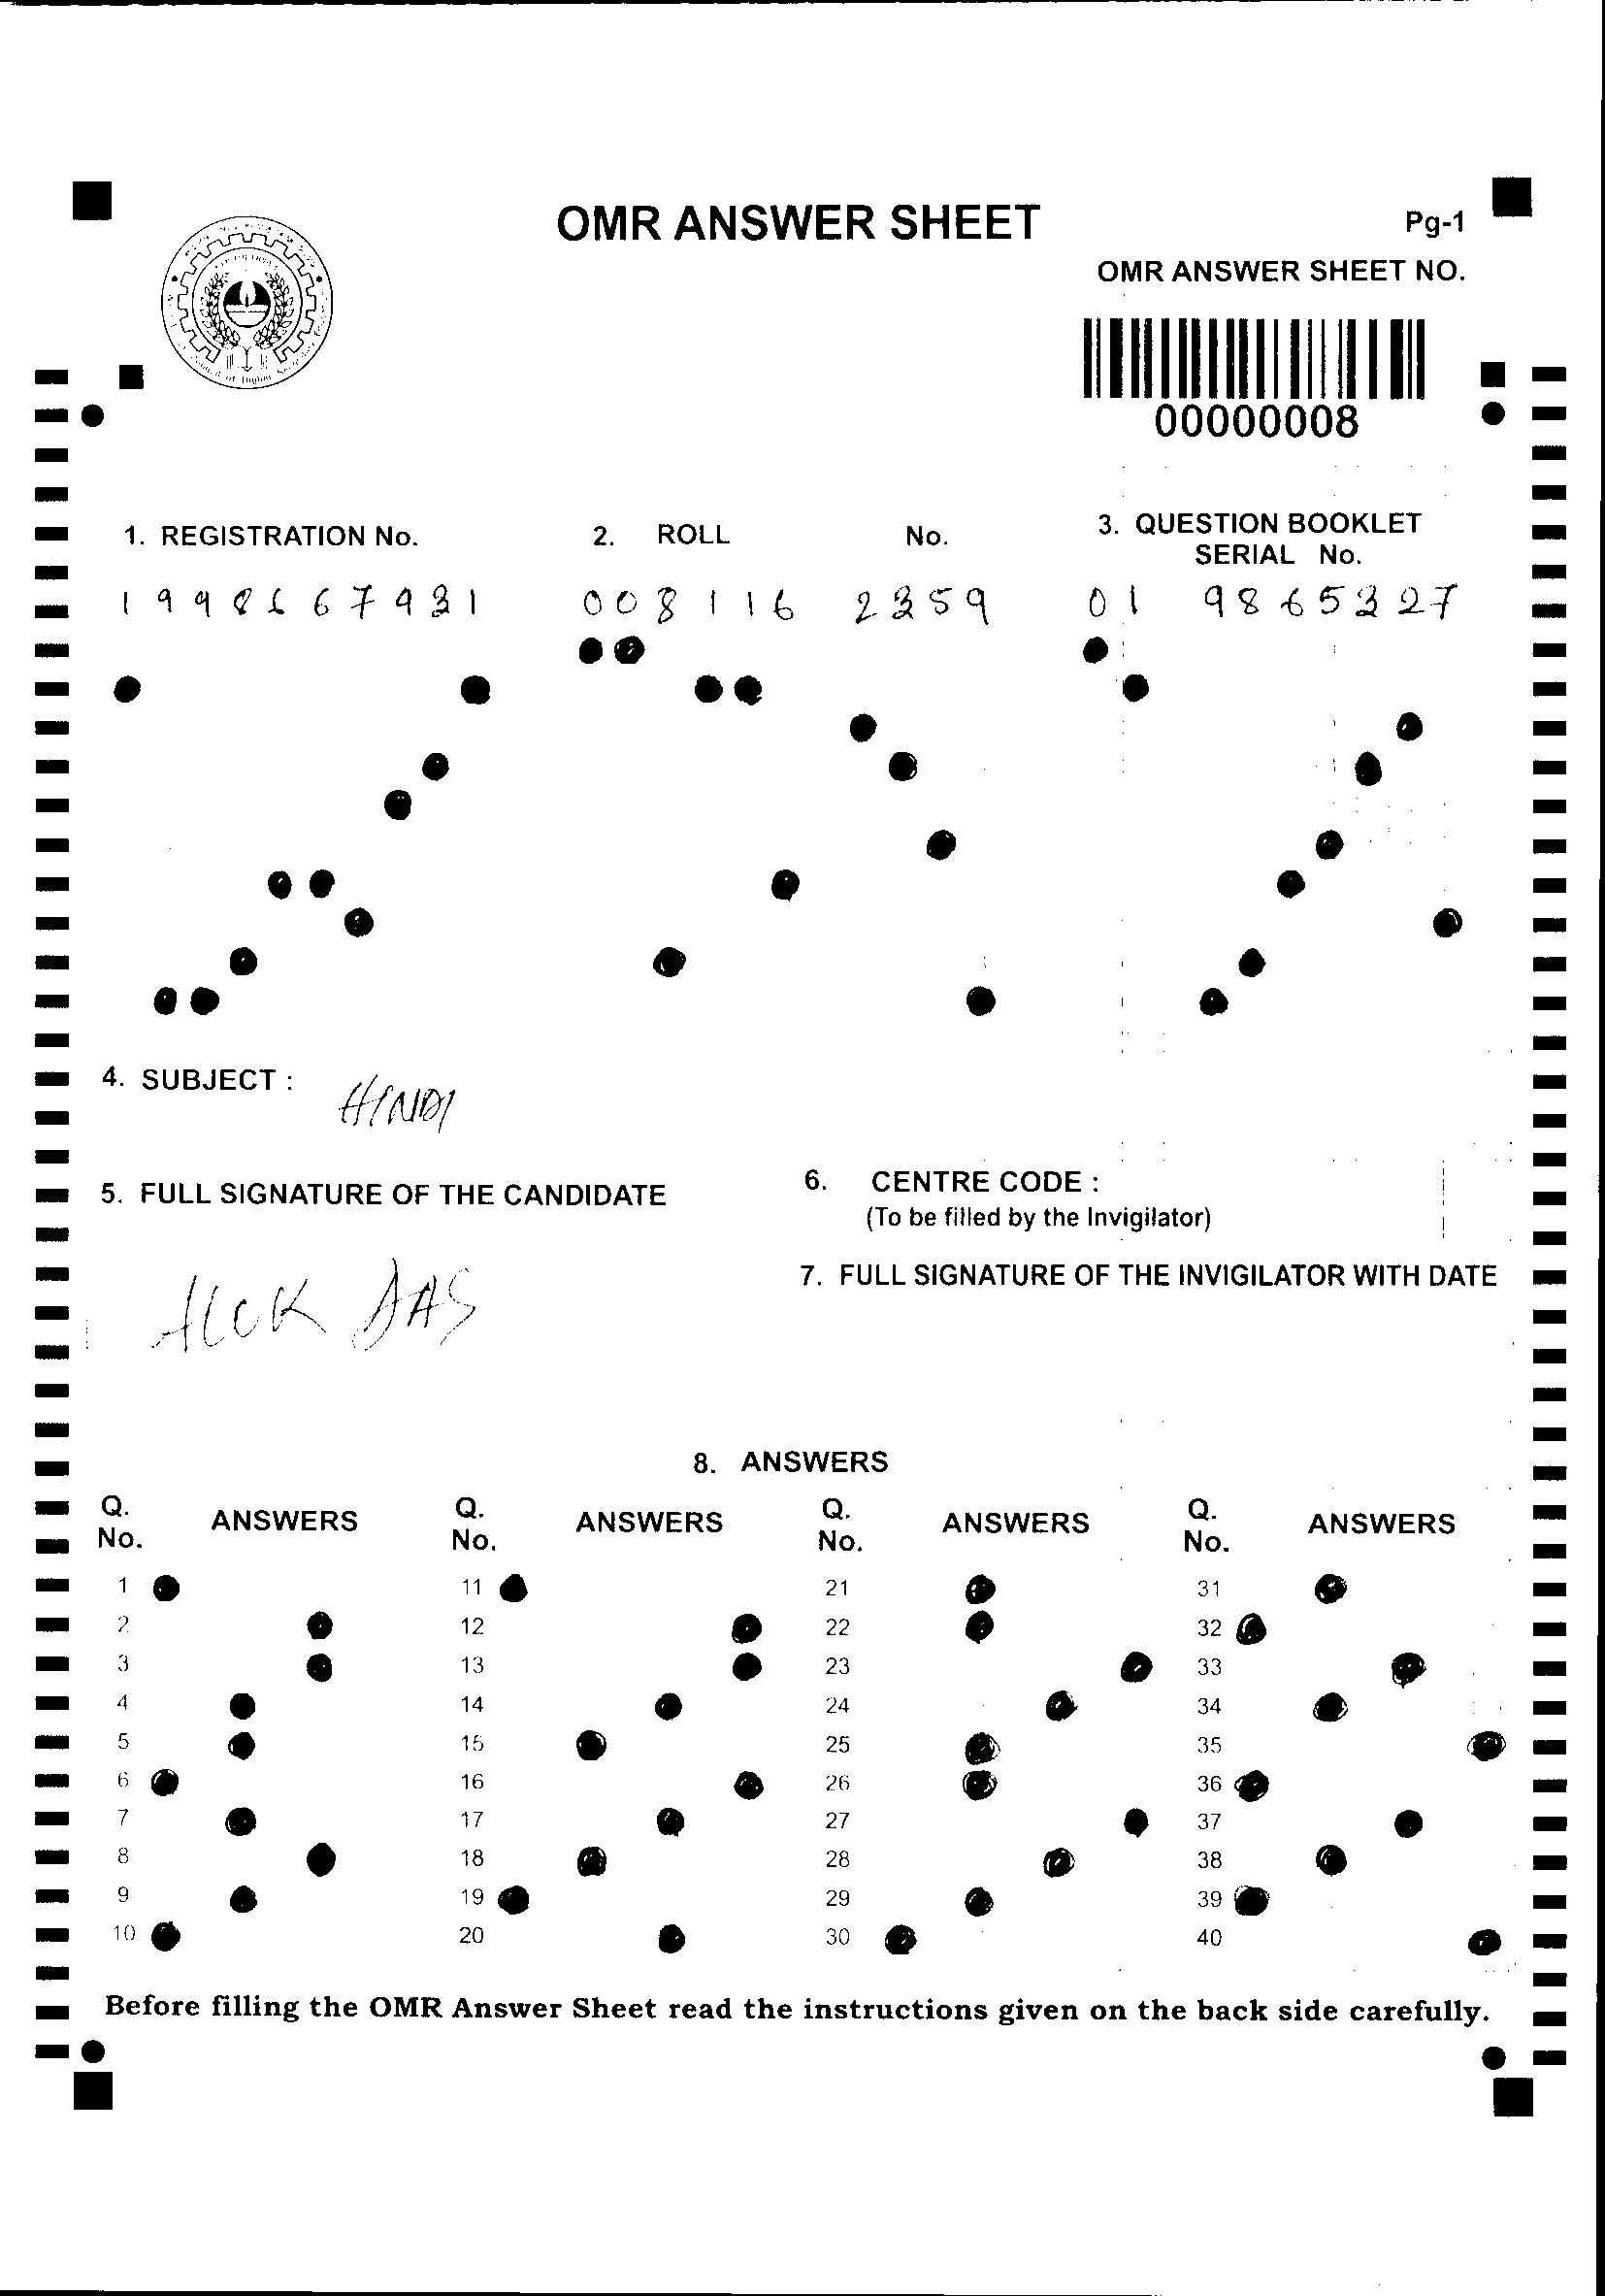 OMR ANSWER SHEET
Pg-1
OMR ANSWER SHEET NO.
00000008
1. REGISTRATION No.
2. ROLL No.
3. QUESTION BOOKLET
SERIAL No.
1998667931
008116 2359
01 9865327
4. SUBJECT : HINDI
5. FULL SIGNATURE OF THE CANDIDATE
6. CENTRE CODE :
(To be filled by the Invigilator)
7. FULL SIGNATURE OF THE INVIGILATOR WITH DATE
DAS
8. ANSWERS
Q. Q. Q. Q.
No. ANSWERS No. ANSWERS No. ANSWERS No. ANSWERS
1 11 21 31
2 12 22 32
3 13 23 33
4 14 24 34
5 15 25 35
6 16 26 36
7 17 27 37
8 18 28 38
9 19 29 39
10 20 30 40
Before filling the OMR Answer Sheet read the instructions given on the back side carefully.